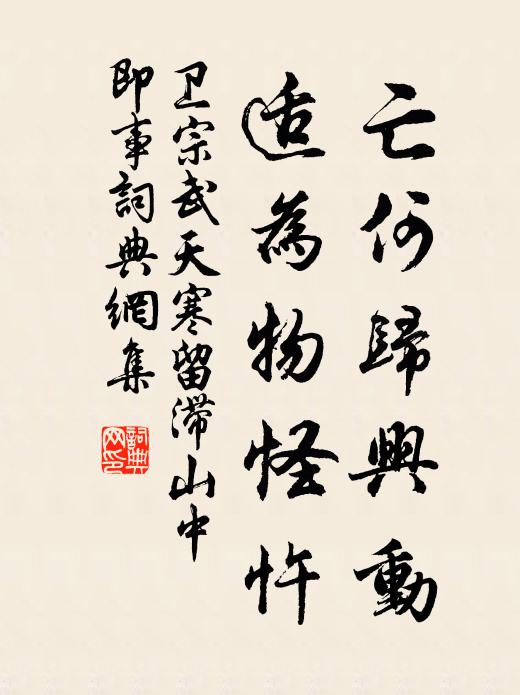 亡何歸興動
适為物怪忤
卫宗武天寒留滯山中
即事詞典網集
詞典網印